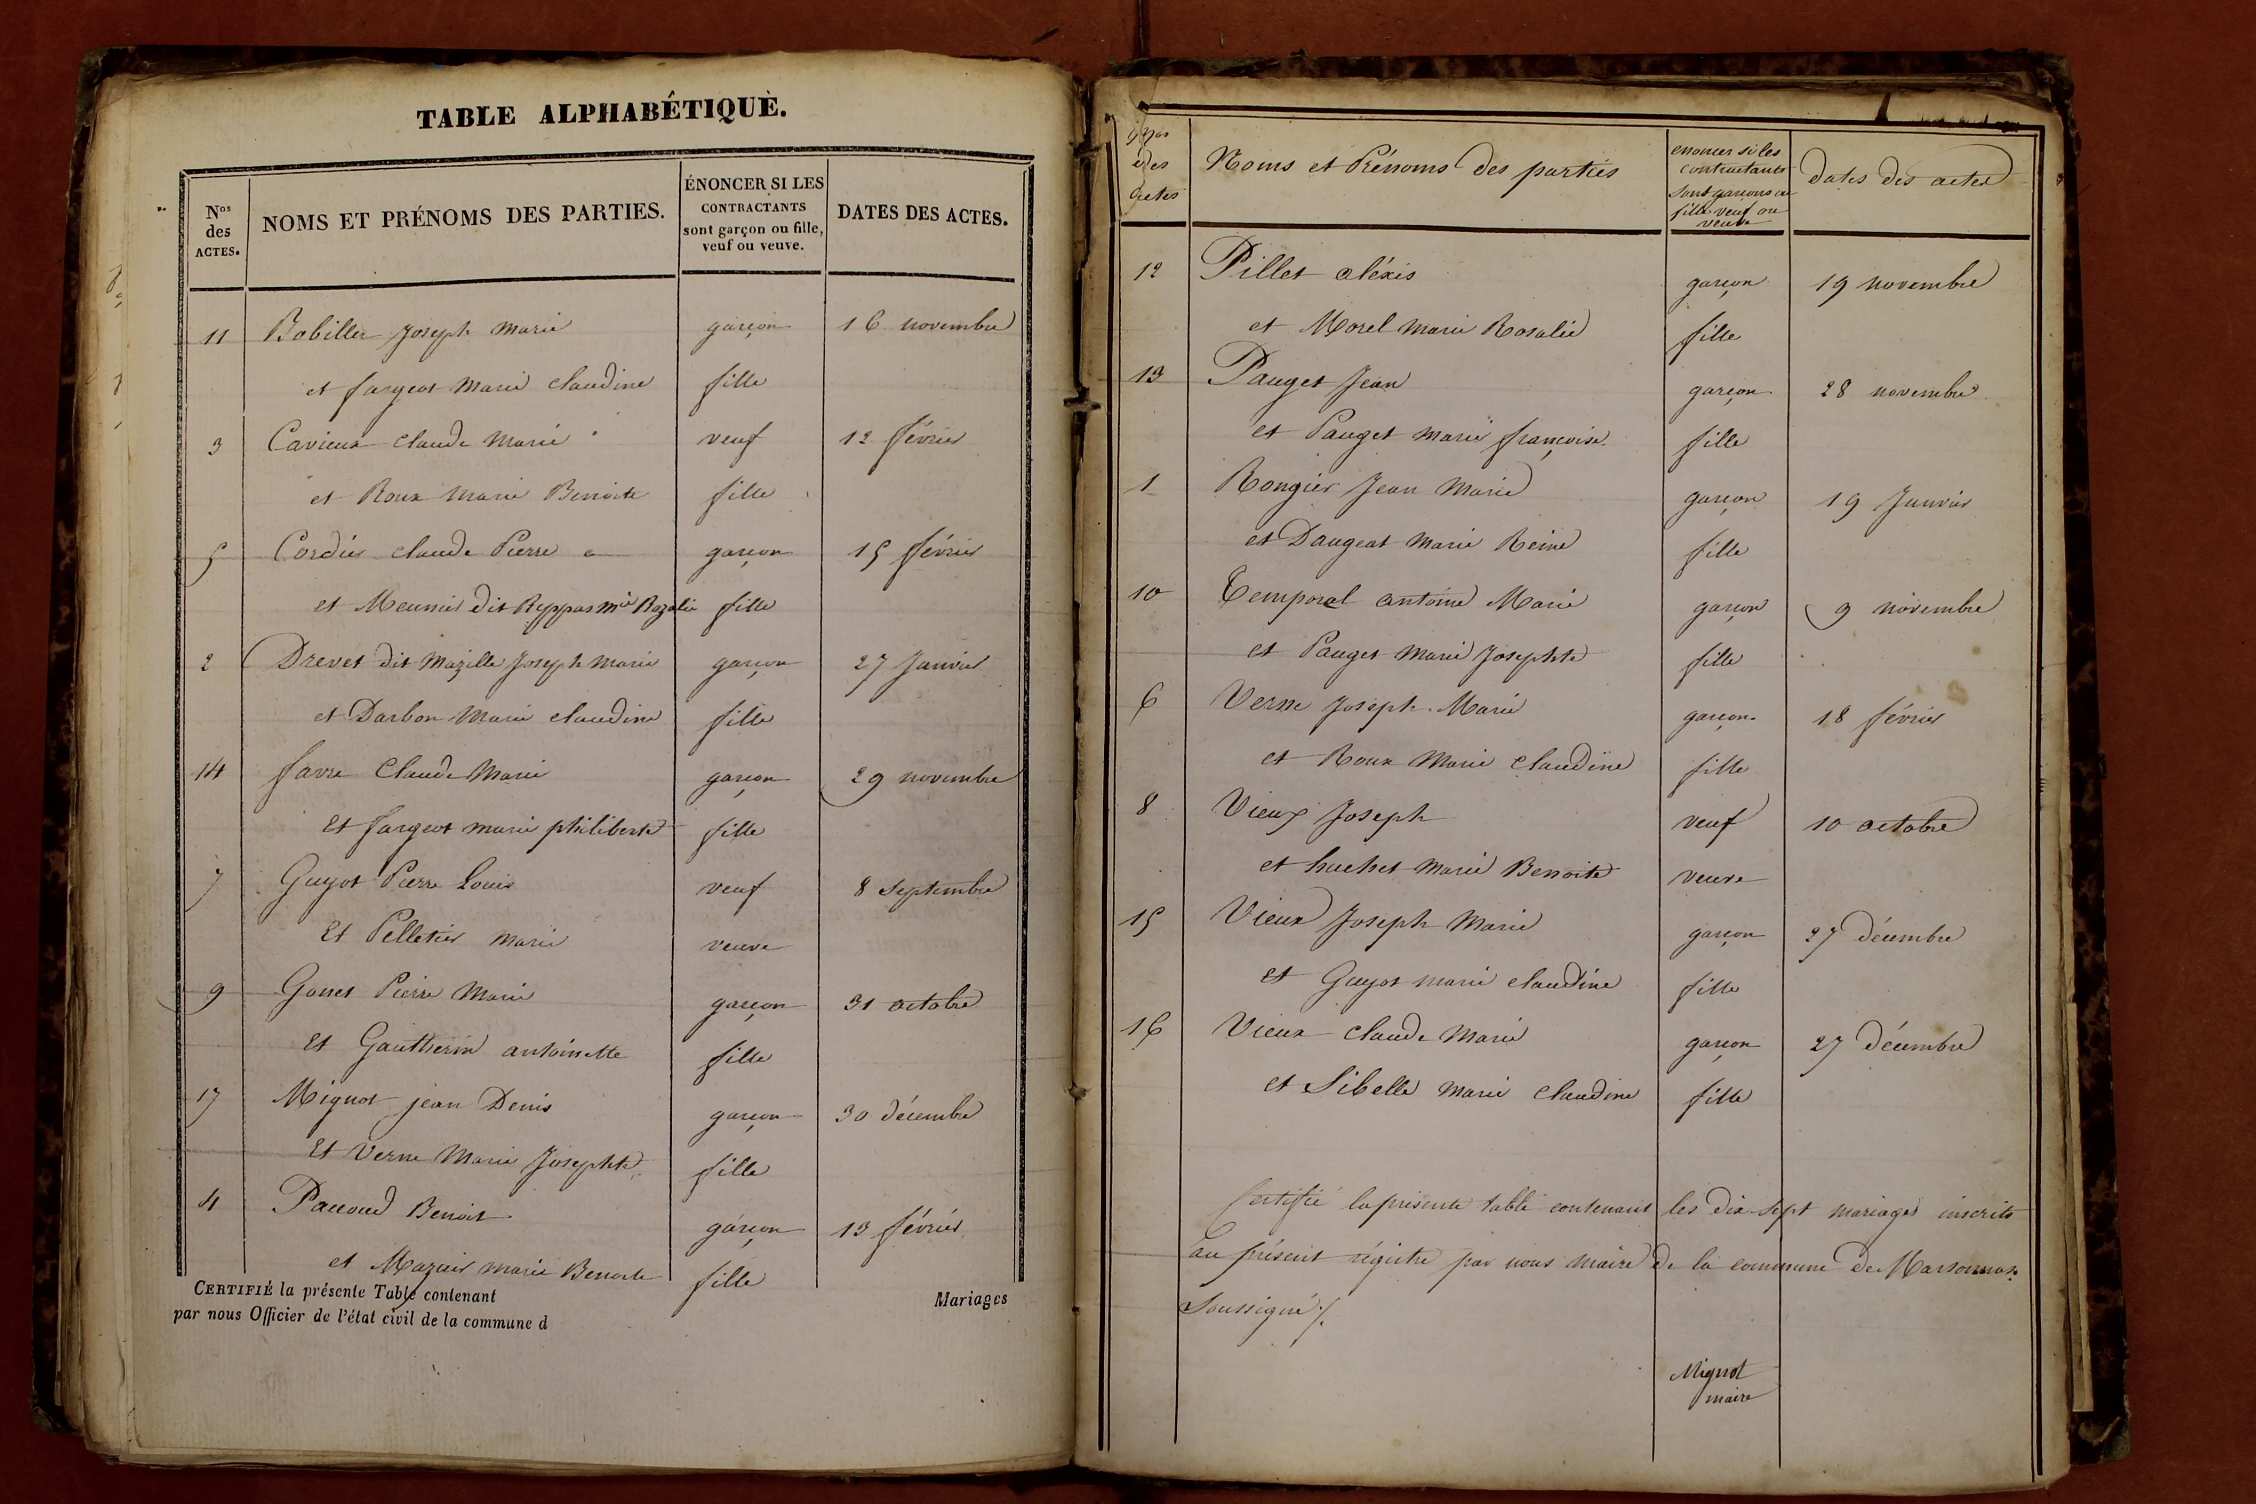 TABLE ALPHABÉTIQUE.
Nos des ACTES.
NOMS ET PRÉNOMS DES PARTIES.
ÉNONCER SI LES CONTRACTANTS sont garçon ou fille, veuf ou veuve.
DATES DES ACTES.
11 Bobiller Joseph Marie garçon 16 novembre
et fargeot Marie claudine fille
3 Cavieux Claude Marie veuf 12 février
et Roux Marie Benoite fille
5 Cordier claude Pierre garçon 15 février
et Meunier dit Ryppas Mie Rozalie fille
2 Drevet dit Mazille Joseph Marie garçon 27 Janvier
et Darbon Marie claudine fille
14 favre Claude Marie garçon 29 novembre
et fargeot marie philiberte fille
7 Guyot Pierre Louis veuf 8 septembre
et Pelletier Marie veuve
9 Gonet Pierre Marie garçon 31 octobre
et Gautherin antoinette fille
17 Mignot jean Denis garçon 30 décembre
et Verne Marie Josephte fille
4 Pacoud Benoit garçon 13 février
et Mazuir marie Benoite fille
CERTIFIÉ la présente Table contenant Mariages
par nous Officier de l'état civil de la commune d
Nos des actes
Noms et Prénoms des parties
enoncer si les contractants sont garçons ou fille veuf ou veuve
dates des actes
12 Pillet aléxis garçon 19 novembre
et Morel Marie Rosalie fille
13 Pauget Jean garçon 28 novembre
et Pauget Marie françoise fille
1 Rongier Jean Marie garçon 19 Janvier
et Daugeat Marie Reine fille
10 Temporal antoine Marie garçon 9 novembre
et Pauget Marie Josephte fille
6 Verne Joseph Marie garçon 18 février
et Roux Marie claudine fille
8 Vieux Joseph veuf 10 octobre
et huchet Marie Benoite veuve
15 Vieux Joseph Marie garçon 27 décembre
et Guyot marie claudine fille
16 Vieux claude Marie garçon 27 décembre
et Sibelle marie claudine fille
Certifié la présente table contenant les dix-sept mariages inscrits
au présent régistre par nous maire de la commune de Marsonnas
Soussigné /.
Mignot
maire